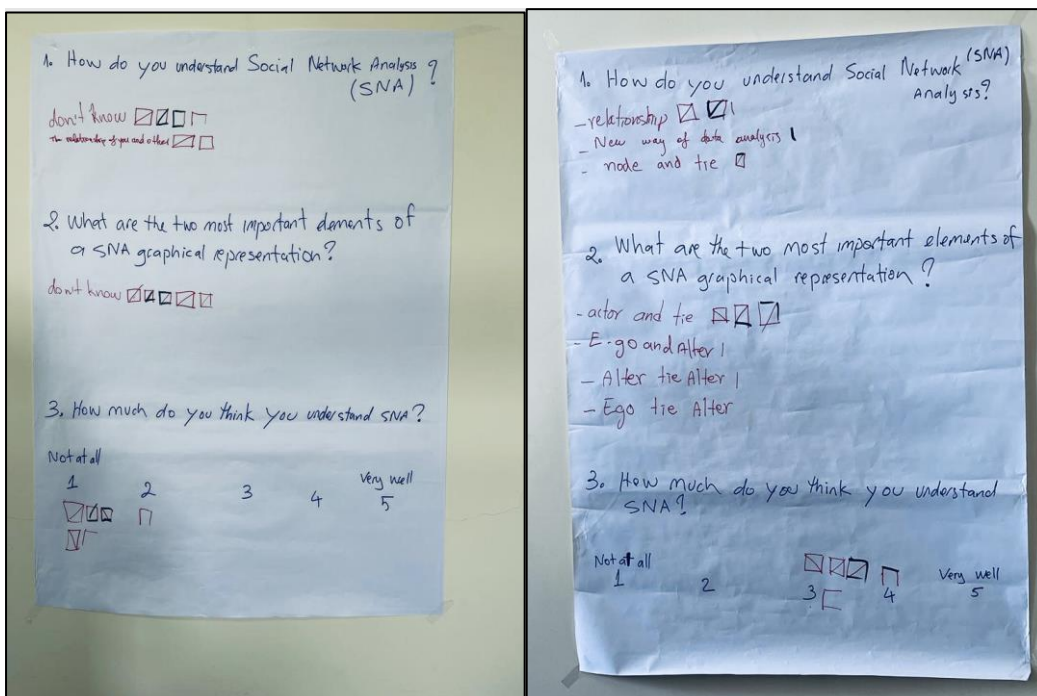 1. How do you understand Social Network Analysis ?
(SNA)
don't know
The relationship of you and other
2. What are the two most important elements of
a SNA graphical representation?
don't know
3. How much do you think you understand SNA?
Not at all
Very well
1 2 3 4 5
1. How do you understand Social Network (SNA)
Analysis?
- relationship
- New way of data analysis
- node and tie
2. What are the two most important elements of
a SNA graphical representation?
- actor and tie
- E-go and Alter
- Alter tie Alter
- Ego tie Alter
3. How much do you think you understand
SNA?
Not at all
Very well
1 2 3 4 5